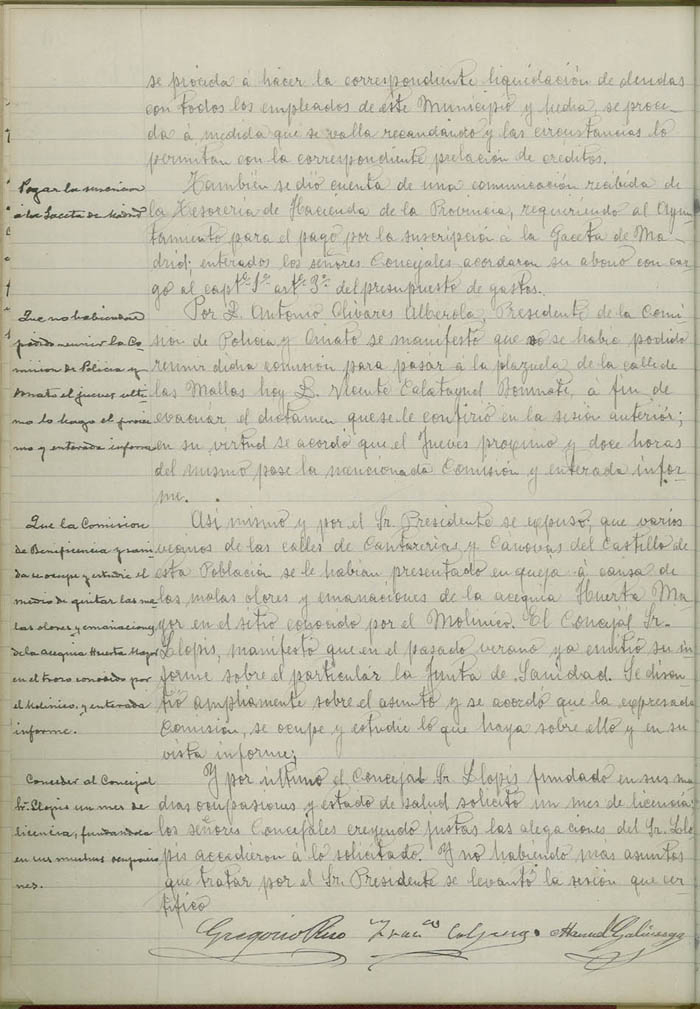 se procéda á hacer la correspondiente liquidación de deudas
con todos los empleados de este Municipio y hecha se proce-
da á medida que se valla recaudando y las circustancias lo
permitan con la correspondiente prelación de créditos.
Pagar la suscricion
á la Gaceta de Madrid
También se dió cuenta de una comunicación recibida de
la Tesorería de Hacienda de la Provincia, requeriendo al Ayun-
tamiento para el pago por la suscripción á la Gaceta de Ma-
drid; enterados los señores Concejales acordaron su abono con car-
go al capto. 1º arto. 3º del presupuesto de gastos.
Que no habiendose
podido reunir la Co-
mision de Policia y
Ornato el jueves ulti-
mo lo haga el proxi-
mo y enterada informe
Por D. Antonio Olivares Alberola, Presidente de la Comi-
sión de Policia y Ornato se manifestó que no se habia podido
reunir dicha comisión para pasar á la plazuela de la calle de
las Mallas hoy D. Vicente Calatayud Bonmatí, á fin de
evacuar el dictamen que se le confirió en la sesión anterior;
en su virtud se acordó que el Jueves proximo y doce horas
del mismo pase la mencionada Comisión y enterada infor-
me.
Que la Comision
de Beneficencia y sani-
dad se ocupe y estudie el
medio de quitar las ma-
las olores y emanaciones
de la acequia Huerta Mayor
en el trozo conocido por
el Molinico, y enterada
informe.
Asi mismo y por el Sr. Presidente se expuso, que varios
vecinos de las calles de Cantarerias y Cánovas del Castillo de
esta Población se le habian presentado en queja á causa de
las malas olores y emanaciones de la acequia Huerta Ma-
yor en el sitio conocido por el Molinico. El Concejal Sr.
Llopis, manifestó que en el pasado verano ya emitió su in-
forme sobre el particular la Junta de Sanidad. Se discu-
tió ampliamente sobre el asunto y se acordó que la expresada
Comision, se ocupe y estudie lo que haya sobre ello y en su
vista informe;
Conceder al Concejal
Sr. Llopis un mes de
licencia, fundandose
en sus muchas ocupacio-
nes.
Y por ultimo el Concejal Sr. Llopis fundado en sus mu-
chas ocupasiones y estado de salud solicitó un mes de licencia;
los señores Concejales creyendo justas las alegaciones del Sr. Llo-
pis accedieron á lo solicitado. Y no habiendo más asuntos
que tratar por el Sr. Presidente se levantó la sesión que cer-
tifico
Gregorio Rico Franco Manuel Galinsoga